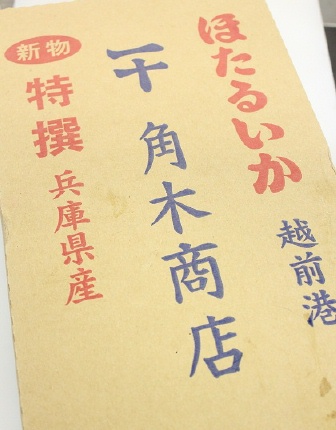 ほたるいか
越前港
一十 角木商店
新物
特撰
兵庫県産